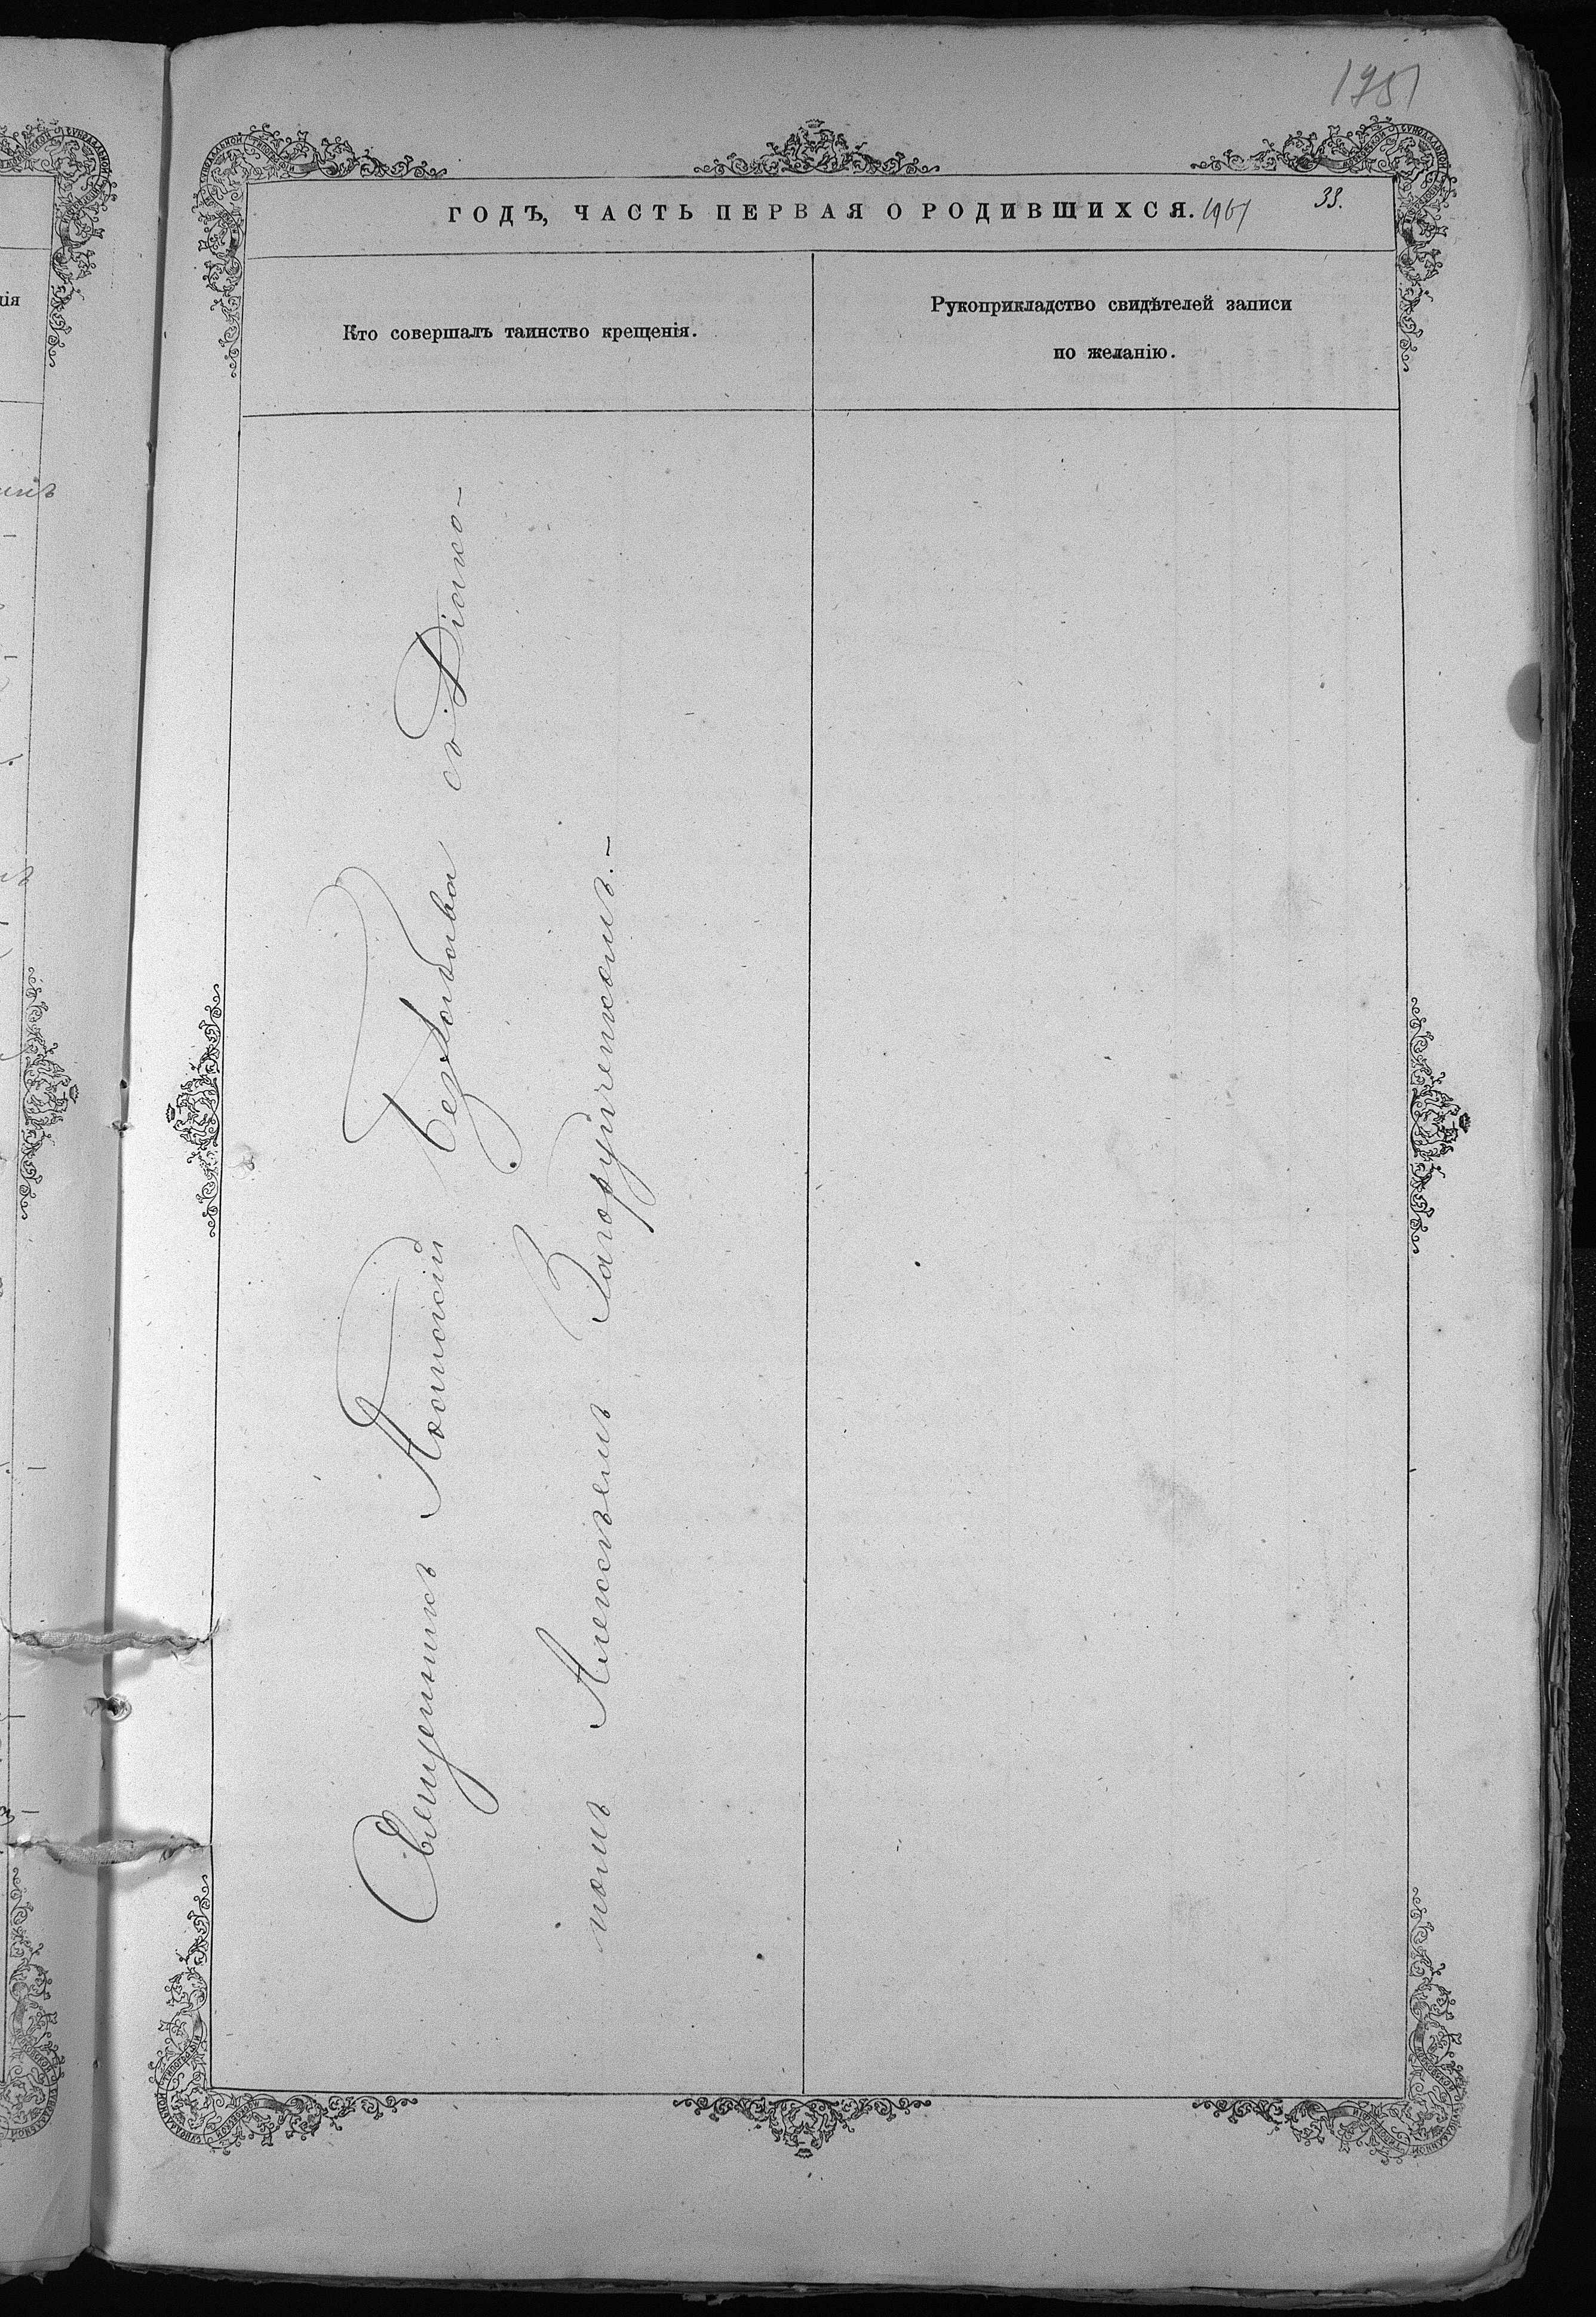 ГОДЪ, ЧАСТЬ ПЕРВАЯ О РОДИВШИХСЯ.
33.
Кто совершалъ таинство крещенія.
Рукоприкладство свидѣтелей записи
по желанію.
Священникъ съ Діако-
номъ Алексѣемъ Загорученкомъ.-